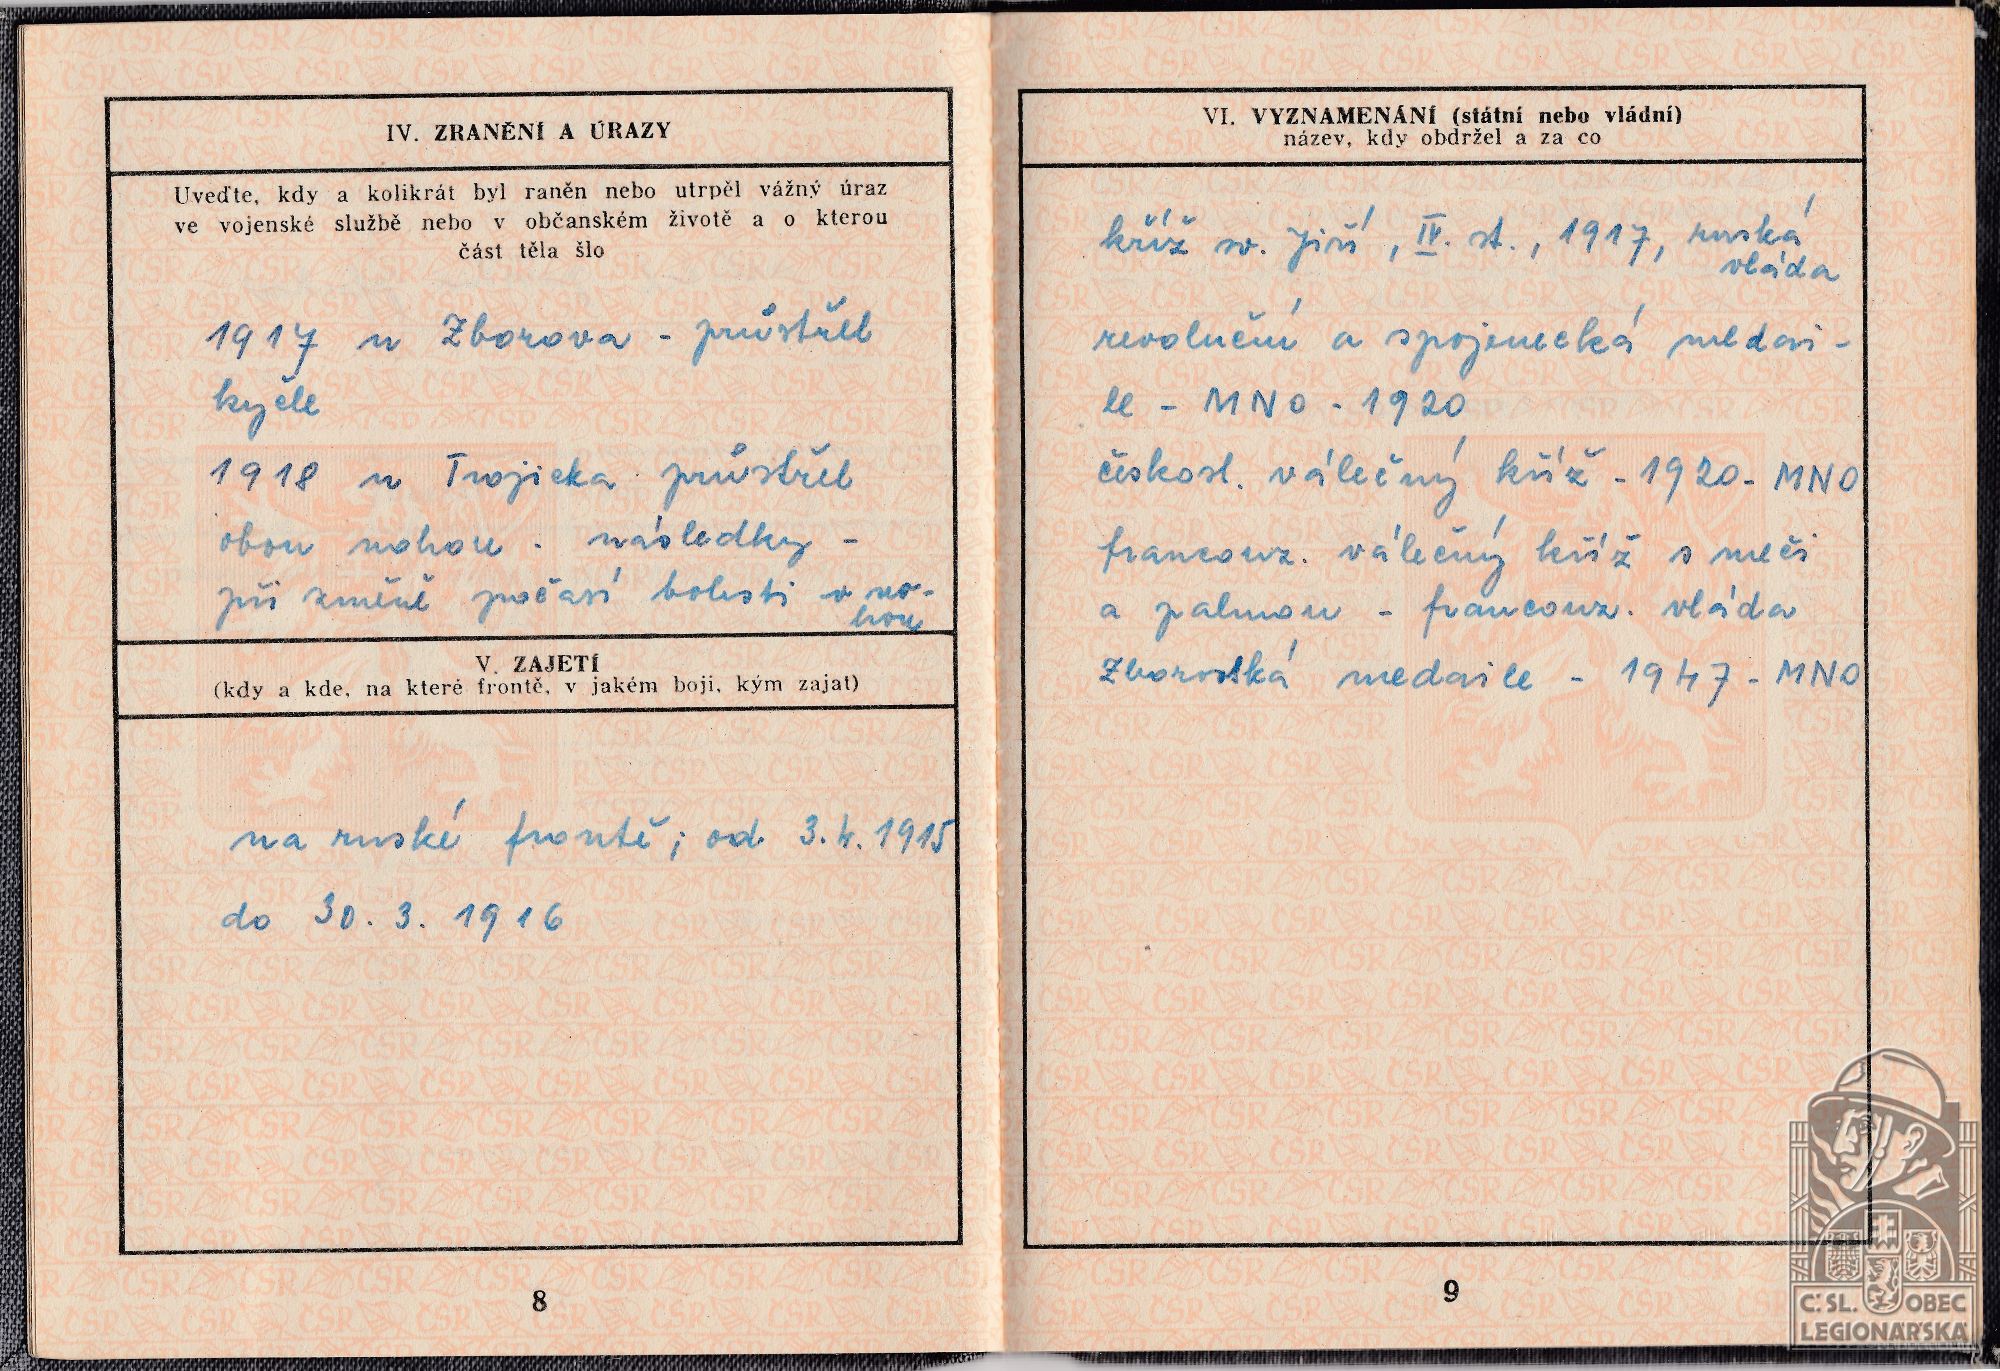 IV. ZRANĚNÍ A ÚRAZY
Uveďte, kdy a kolikrát byl raněn nebo utrpěl vážný úraz
ve vojenské službě nebo v občanském životě a o kterou
část těla šlo
1917 u Zborova - průstřel
kyčle
1918 u Trojicka průstřel
obou nohou - následky -
při změně počasí bolesti v no-
hou
V. ZAJETÍ
(kdy a kde, na které frontě, v jakém boji, kým zajat)
na ruské frontě; od 3.4.1915
do 30.3.1916
8
VI. VYZNAMENÁNÍ (státní nebo vládní)
název, kdy obdržel a za co
kříž sv. Jiří, IV. st., 1917, ruská
vláda
revoluční a spojenecká medai-
le - MNO - 1920
českosl. válečný kříž - 1920 - MNO
francouz. válečný kříž s meči
a palmou - francouz. vláda
Zborovská medaile - 1947 - MNO
9
Č.SL. OBEC
LEGIONÁŘSKÁ